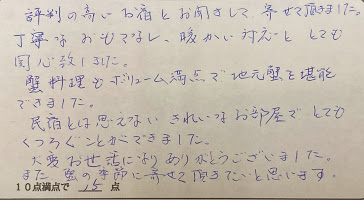 評判の高いお宿とお聞きして、寄せて頂きました。
丁寧なおもてなし、暖かい対応と とても
関心致しました。
蟹料理もボリューム満点で地元蟹を堪能
できました。
民宿とは思えない きれいなお部屋で とても
くつろぐことができました。
大変お世話になり ありがとうございました。
また、蟹の季節に寄せて頂きたいと思います。
10点満点で 15 点